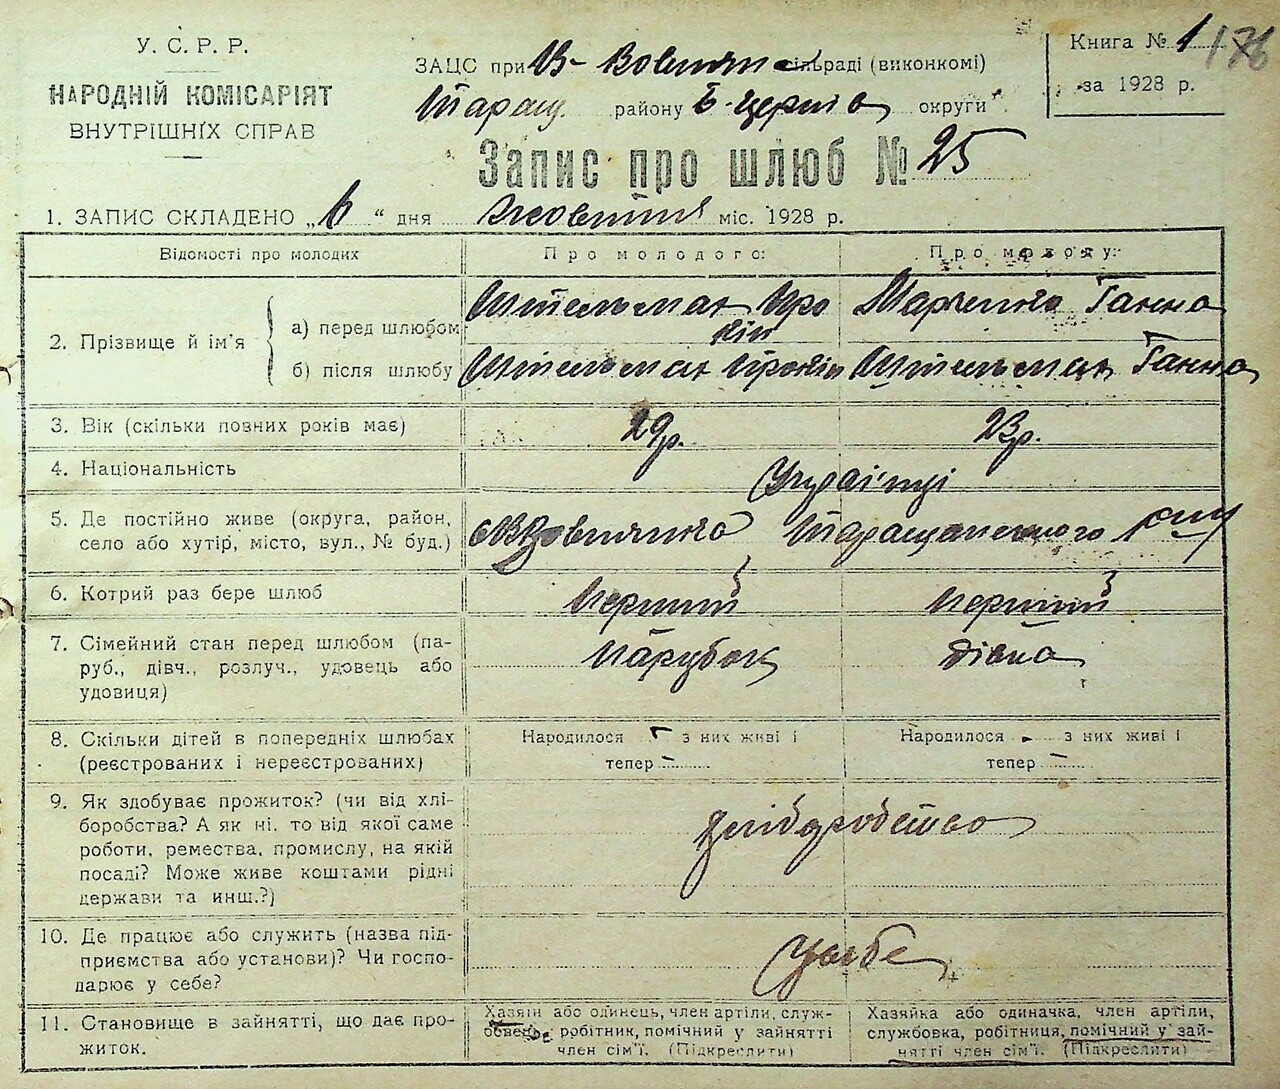 У. С. Р. Р.
НАРОДНІЙ КОМІСАРІЯТ
ВНУТРІШНІХ СПРАВ
ЗАЦС при В- Вовнян сільраді (виконкомі)
Таращ. району Б-Церків округи
Книга № 1
за 1928 р.
176
Запис про шлюб № 25
1. ЗАПИС СКЛАДЕНО „6“ дня Жовтня міс. 1928 р.
Відомості про молодих
Про молодого:
Про молоду:
2. Прізвище й ім'я
а) перед шлюбом
Штельмах Про
кіп
Марченко Ганна
б) після шлюбу
Штельмах Прокіп
Штельмах Ганна
3. Вік (скільки повних років має)
29р.
23р.
4. Національність
Українці
5. Де постійно живе (округа, район,
село або хутір, місто, вул., № буд.)
Таращанского
6. Котрий раз бере шлюб
Перший
Перший
7. Сімейний стан перед шлюбом (па-
руб., дівч., розлуч., удовець або
удовиця)
Парубок
Дівка
8. Скільки дітей в попередніх шлюбах
(реєстрованих і нереєстрованих)
Народилося - з них живі і
тепер -
Народилося - з них живі і
тепер -
9. Як здобуває прожиток? (чи від хлі-
боробства? А як ні. то від якої саме
роботи, ремества, промислу, на якій
посаді? Може живе коштами рідні
держави та инш.?)
хліборобство
10. Де працює або служить (назва під-
приємства або установи)? Чи госпо-
дарює у себе?
У себе
11. Становище в зайнятті, що дає про-
житок.
Хазяїн або одинець, член артілі, служ-
бовець, робітник, помічний у зайнятті
член сім'ї. (Підкреслити)
Хазяйка або одиначка, член артіли,
службовка, робітниця, помічний у зай-
нятті член сім'ї. (Підкреслити)